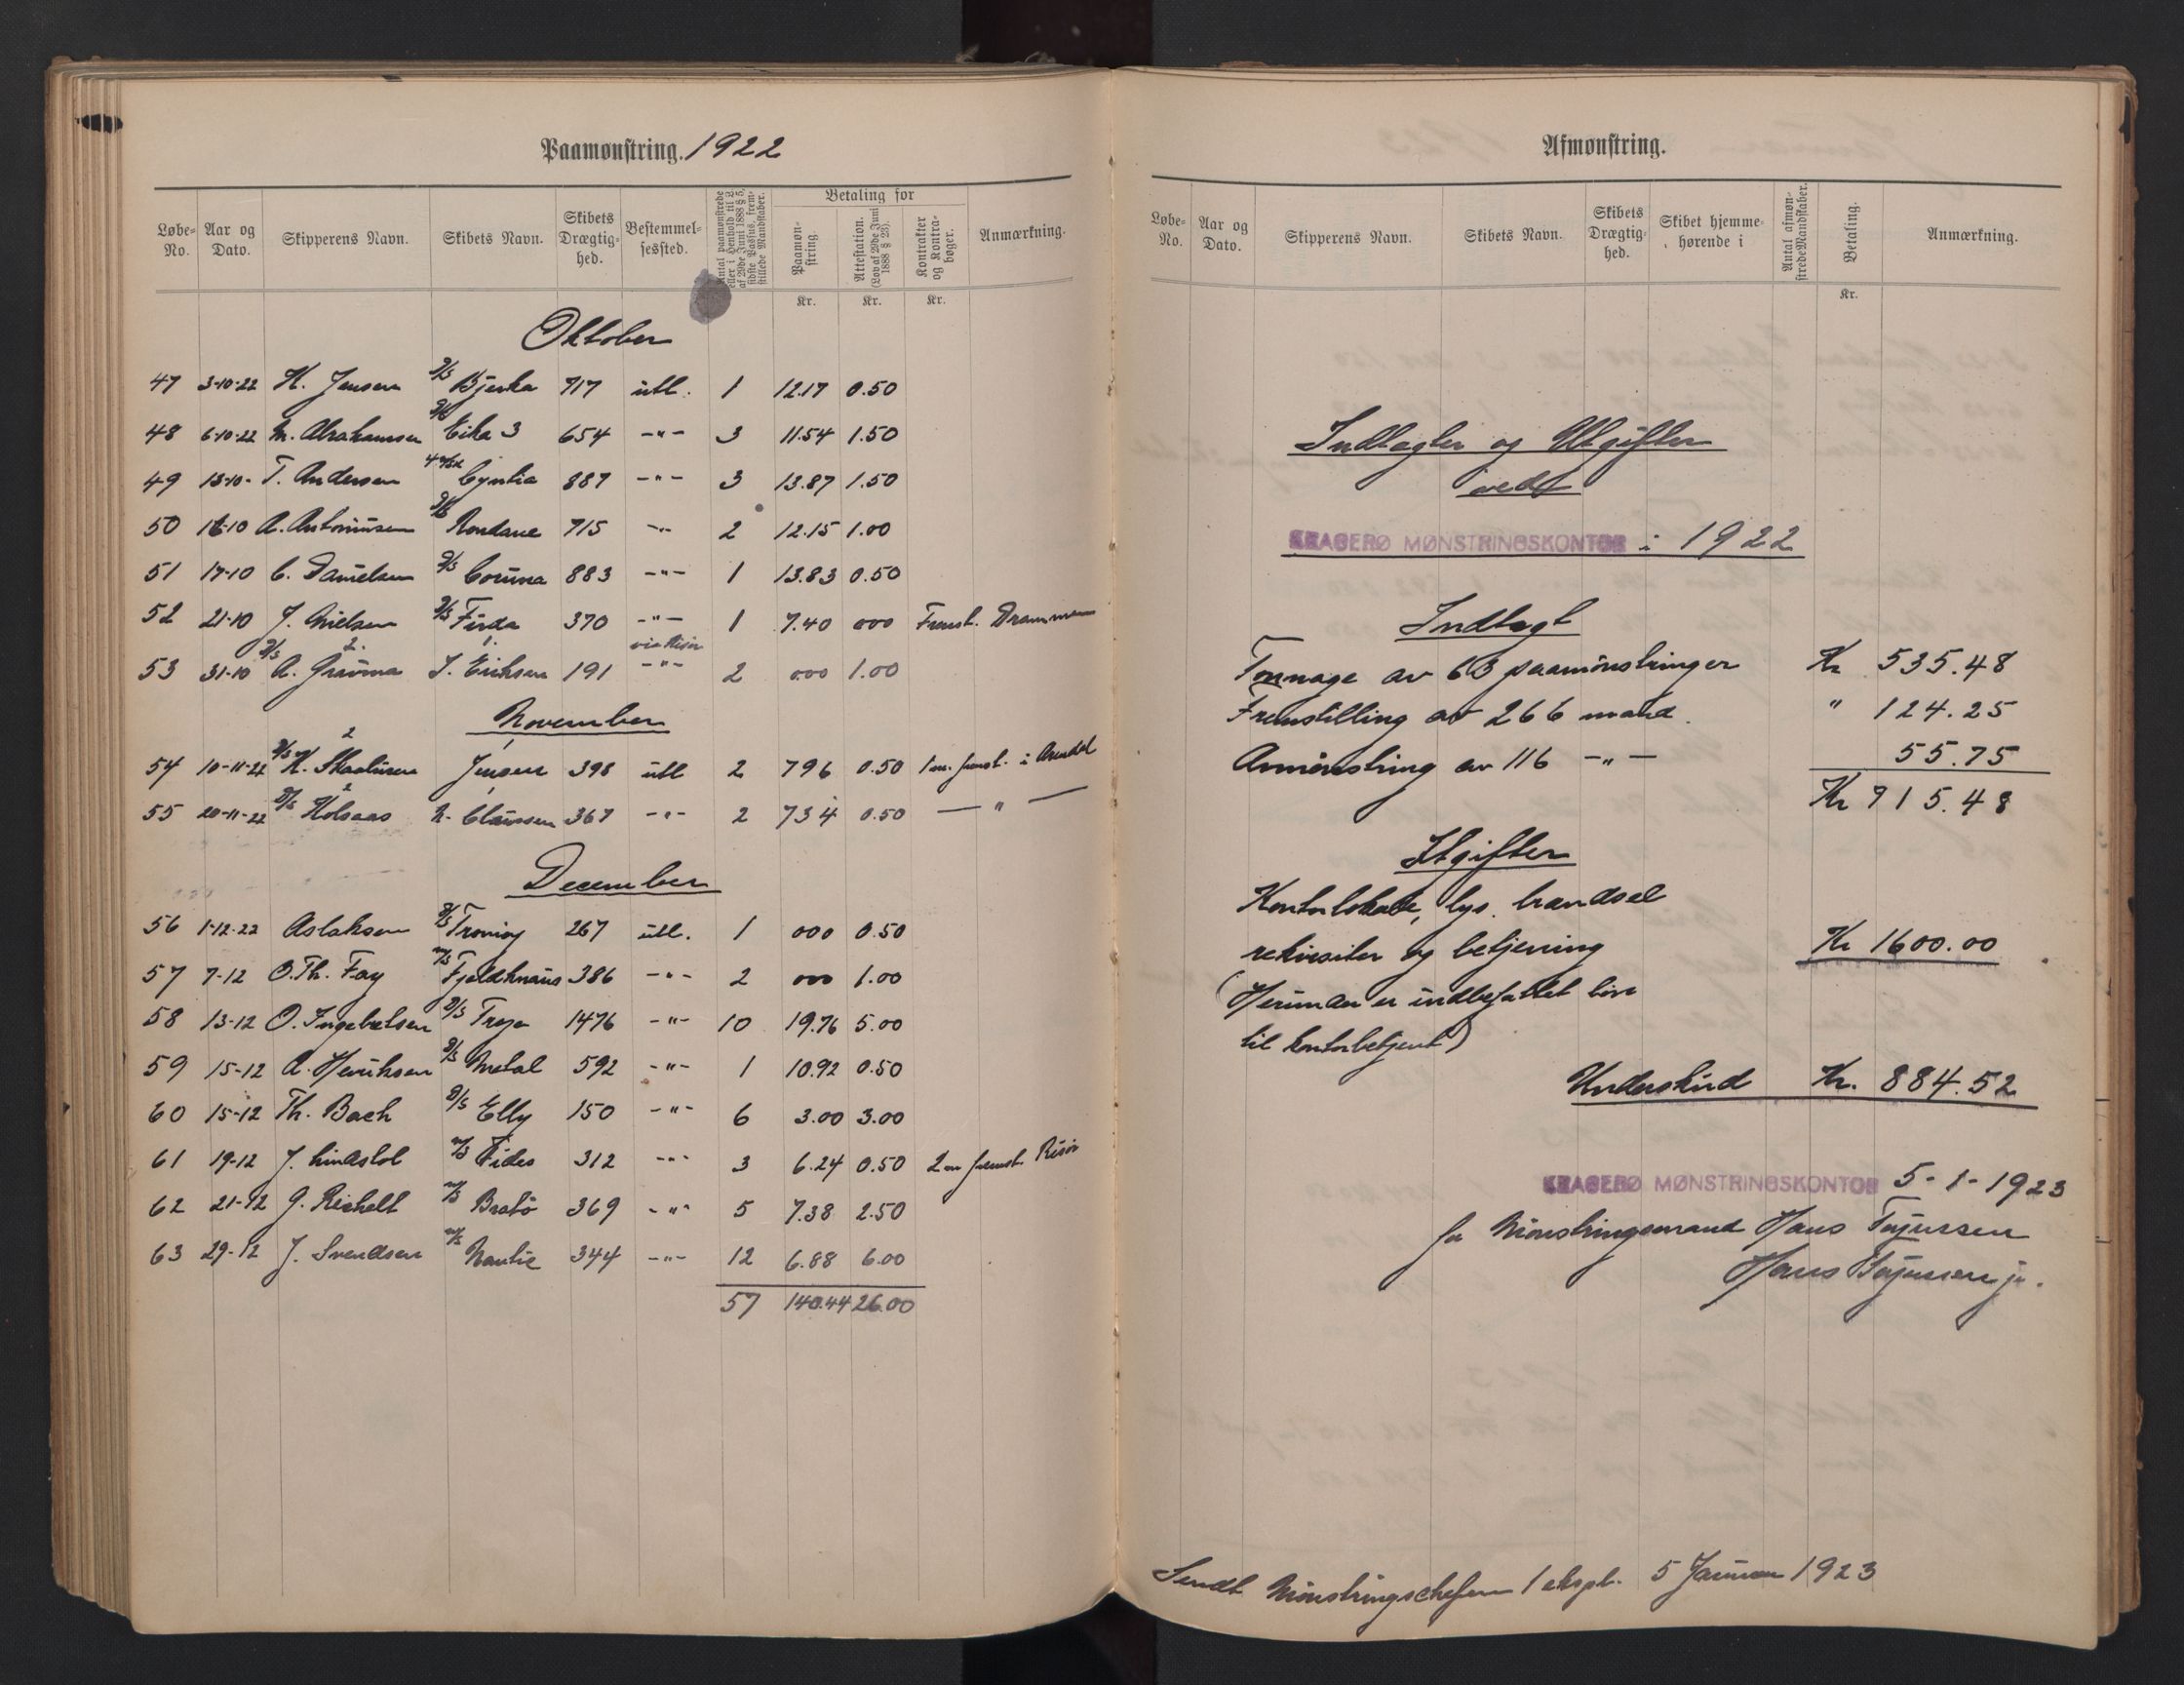 Paamønstring. 1922
Løbe-No. Aar og Dato. Skipperens Navn. Skibets Navn. Skibets Drægtig-hed. Bestemmel-sessted. Antal paamønstrede eller i Henhold til L. af 29de Juni 1888 § 5, sidste Passus, frem-stillede Mandskaber. Betaling for Paamøn-string. Attestation. (Lov af 29de Juni 1888 § 23). Kontrakter og Kontra-bøger. Anmærkning.
Kr. Kr. Kr.
Oktober
47 3-10-22 H. Jensen D/S Bjerka 717 utl. 1 12.17 0.50
48 6-10-22 M. Abrahamsen D/S Eika 3 654 -"- 3 11.54 1.50
49 13-10- T. Andersen Cyntia 887 -"- 3 13.87 1.50
50 16-10 A. Antoniusen D/S Rondane 715 -"- 2 12.15 1.00
51 17-10 C. Danielsen D/S Coruna 883 -"- 1 13.83 0.50
52 21-10 J. Nielsen D/S Firda 370 -"- 1 7.40 000 Fremst. Drammen
via Risør
53 31-10 D/S A. Gruvma J. Eriksen 191 -"- 2 000 1.00
November
54 10-11-22 D/S K. Skaaluren Jensen 398 utl 2 796 0.50 1 m. fremst. i Arendal
55 20-11-22 D/S Kolsaas N. Claussen 367 -"- 2 734 0.50 — " —
December
56 1-12-22 Aslaksen D/S Tromøy 267 utl. 1 000 0.50
57 7-12 O. Th. Fay M/S Fjeldknaus 386 -"- 2 000 1.00
58 13-12 O. Ingebretsen D/S Freja 1476 -"- 10 19.76 5.00
59 15-12 A. Henriksen D/S Metal 592 -"- 1 10.92 0.50
60 15-12 Th. Bach D/S Elly 150 -"- 6 3.00 3.00
61 19-12 J. Lindstol M/S Fides 312 -"- 3 6.24 0.50 2 m fremst. Risør
62 21-12 G. Reichelt M/S Bratø 369 -"- 5 7.38 2.50
63 29-12 J. Svendsen M/S Nautic 344 -"- 12 6.88 6.00
57 140.44 26.00
Afmønstring.
Løbe-No. Aar og Dato. Skipperens Navn. Skibets Navn. Skibets Drægtig-hed. Skibet hjemme-hørende i Antal afmøn-strede Mandskaber. Betaling. Anmærkning.
Kr.
Indtægter og Utgifter
vedt
KRAGERØ MØNSTRINGSKONTOR i 1922
Indtægt
Tonnage av 63 paamønstringer Kr 535.48
Fremstilling av 266 mand. " 124.25
Avmønstring av 116 -"- 55.75
Kr 715.48
Utgifter
Kontorlokale, lys, brændsel
rekvisiter og betjening Kr 1600.00
(Herunder er indbefattet løn
til kontorbetjent)
Underskud Kr. 884.52
KRAGERØ MØNSTRINGSKONTOR 5-1-1923
for Mønstringsmand Hans Tojussen
Hans Tojussen jr.
Sendt Mønstringschefen 1 ekspl. 5 Januar 1923